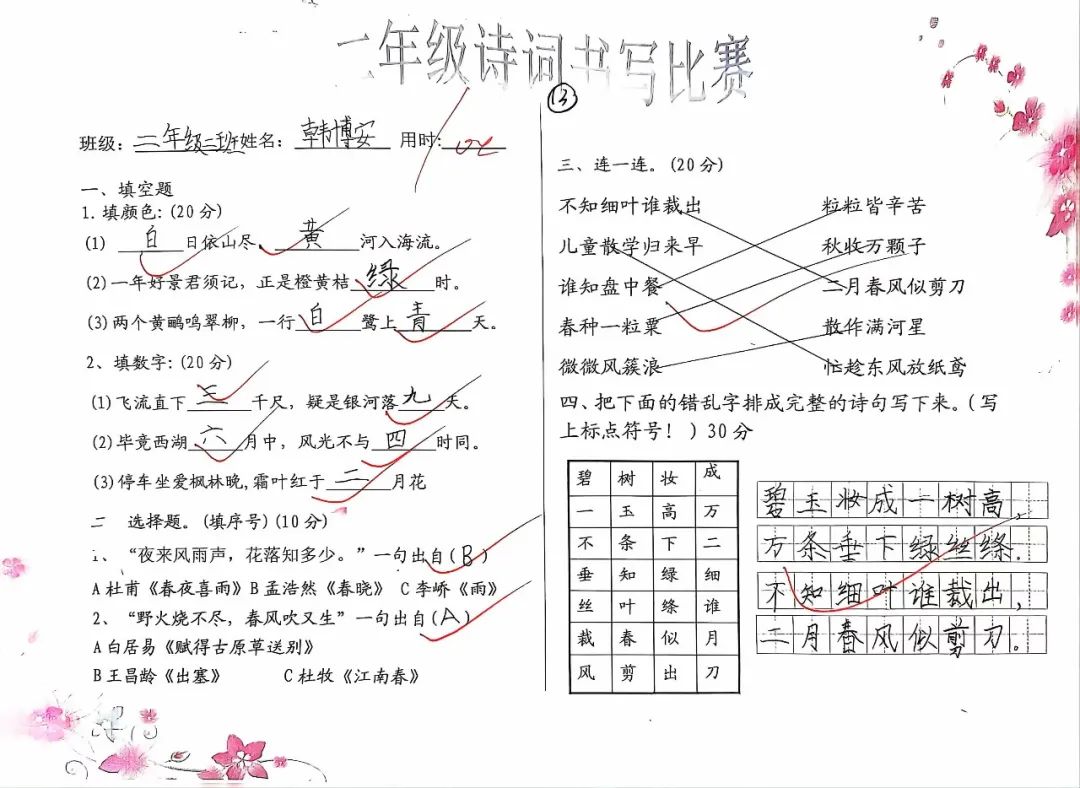 二年级诗词书写比赛
班级：二年级二班 姓名：韩博安 用时:
一、填空题
1.填颜色:(20分)
(1) 白日依山尽，黄河入海流。
(2)一年好景君须记，正是橙黄桔绿时。
(3)两个黄鹂鸣翠柳，一行白鹭上青天。
2、填数字:(20分)
(1)飞流直下三千尺，疑是银河落九天。
(2)毕竟西湖六月中，风光不与四时同。
(3)停车坐爱枫林晚,霜叶红于二月花
二 选择题。(填序号)(10分)
1、“夜来风雨声，花落知多少。”一句出自(B)
A杜甫《春夜喜雨》B孟浩然《春晓》 C李峤《雨》
2、“野火烧不尽，春风吹又生”一句出自(A)
A白居易《赋得古原草送别》
B王昌龄《出塞》 C杜牧《江南春》
⑬
三、连一连。(20分)
不知细叶谁裁出 粒粒皆辛苦
儿童散学归来早 秋收万颗子
谁知盘中餐 二月春风似剪刀
春种一粒粟 散作满河星
微微风簇浪 忙趁东风放纸鸢
四、把下面的错乱字排成完整的诗句写下来。(写
上标点符号！)30分
碧 树 妆 成
一 玉 高 万
不 条 下 二
垂 知 绿 细
丝 叶 绦 谁
裁 春 似 月
风 剪 出 刀
碧玉妆成一树高，
万条垂下绿丝绦.
不知细叶谁裁出，
二月春风似剪刀。